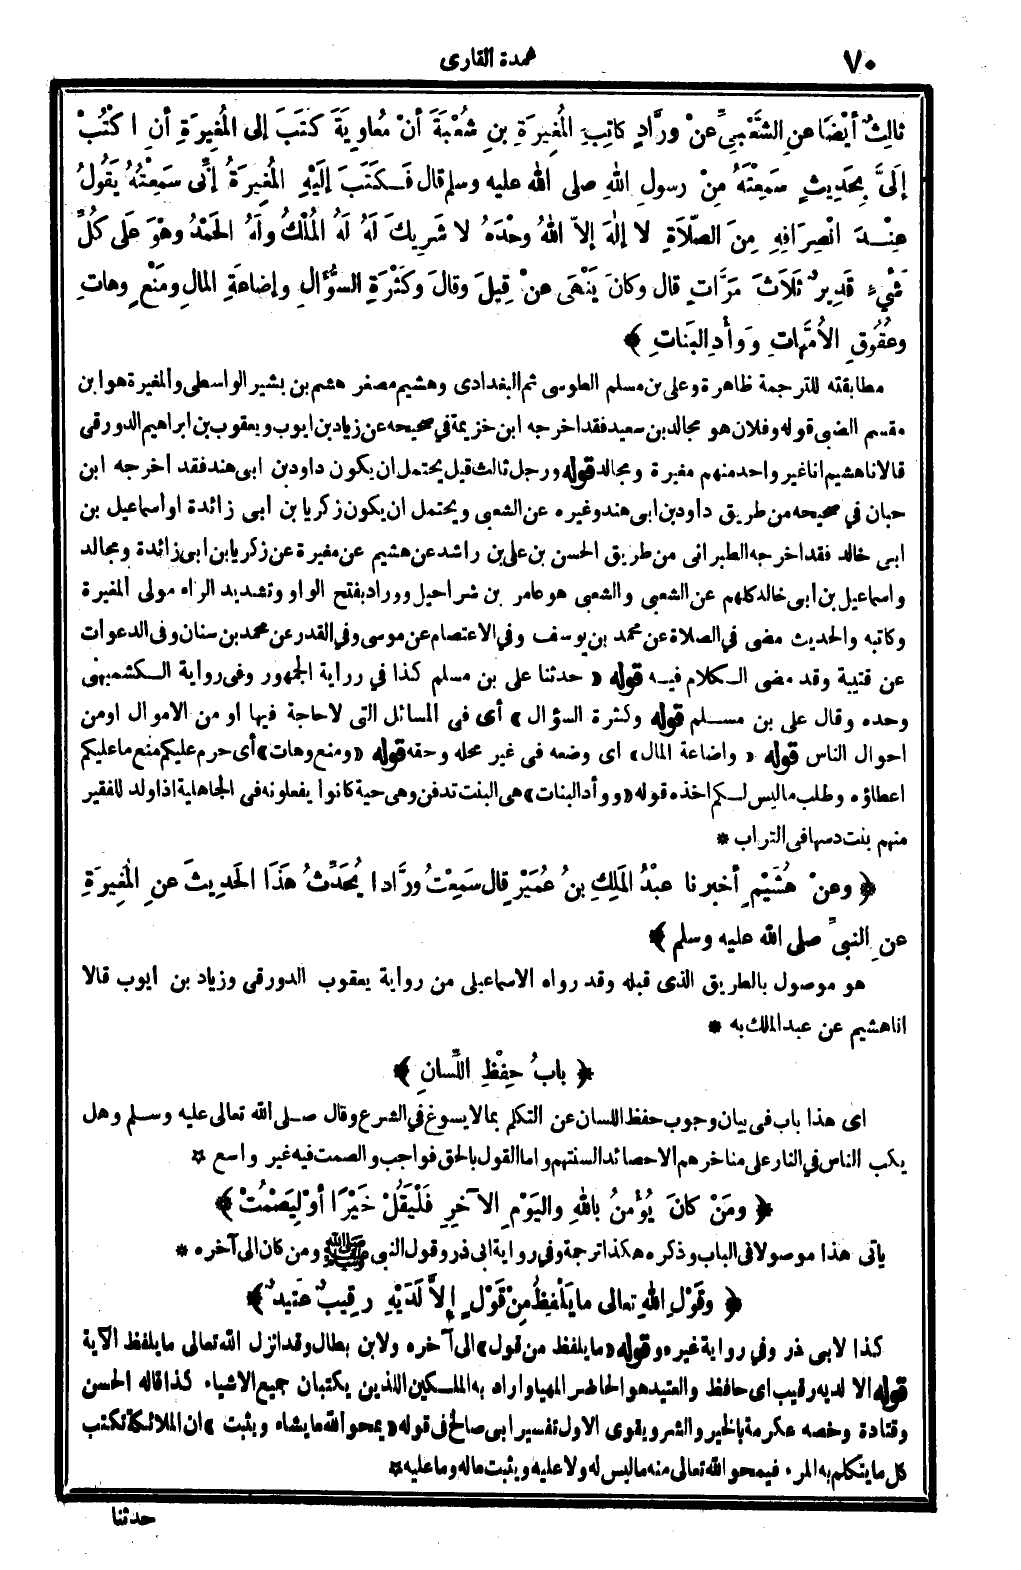 ٧٠
عمدة القارى
ثالِثٌ أيْضًا عنِ الشَّعْبيِّ عنْ ورَّادٍ كاتِبِ المُغِيرَةِ بنِ شُعْبَةَ أنْ مُعاوِيَةَ كَتَبَ إلى المُغِيرَةِ أنِ ا كْتُبْ
إلَىَّ بِحَدِيثٍ سَمِعْتَهُ مِنْ رسولِ اللهِ صلى الله عليه وسلم قال فَكَتَبَ إلَيْهِ المُغِيرَةُ إنِّى سَمِعْتُهُ يَقُولُ
عِنْدَ انْصِرَافِهِ مِنَ الصَّلاَةِ لا إلٰهَ إلاَّ اللهُ وحْدَهُ لا شَرِيكَ لَهُ لَهُ المُلْكُ ولَهُ الحَمْدُ وهْوَ عَلَى كُلِّ
شَىْءٍ قَدِيرٌ ثَلاَثَ مَرَّاتٍ قال وكانَ يَنْهَى عنْ قِيلَ وقالَ وكَثْرَةِ السُّؤَالِ وإضاعَةِ المالِ ومَنْعٍ وهاتِ
وعُقُوقِ الأُمَّهاتِ ووأدِ البَنَاتِ ﴾
مطابقته للترجمة ظاهرة وعلى بن مسلم الطوسى ثم البغدادى وهشيم مصغر هشم بن بشير الواسطى والمغيرة هو ابن
مقسم الضبى قوله وفلان هو مجالد بن سعيد فقد اخرجه ابن خزيمة في صحيحه عن زياد بن ايوب ويعقوب بن ابراهيم الدورقى
قالا نا هشيم انا غير واحد منهم مغيرة ومجالد قوله ورجل ثالث قيل يحتمل ان يكون داود بن ابى هند فقد اخرجه ابن
حبان في صحيحه من طريق داود بن ابى هند وغيره عن الشعبى ويحتمل ان يكون زكريا بن أبى زائدة او اسماعيل بن
ابى خالد فقد اخرجه الطبرانى من طريق الحسن بن على بن راشد عن هشيم عن مغيرة عن زكريا بن ابى زائدة ومجالد
واسماعيل بن أبى خالد كلهم عن الشعبى والشعبى هو عامر بن شراحيل ووراد بفتح الواو وتشديد الراء مولى المغيرة
وكاتبه والحديث مضى في الصلاة عن محمد بن يوسف وفي الاعتصام عن موسى وفي القدر عن محمد بن سنان وفى الدعوات
عن قتيبة وقد مضى الكلام فيه قوله « حدثنا على بن مسلم كذا في رواية الجمهور وفى رواية الكشميهنى
وحده وقال على بن مسلم قوله وكثرة السؤال » أى فى المسائل التى لا حاجة فيها او من الاموال او من
احوال الناس قوله « واضاعة المال» اى وضعه فى غير محله وحقه قوله «ومنع وهات» أى حرم عليكم منع ما عليكم
اعطاؤه وطلب ما ليس لكم اخذه قوله «ووأد البنات» هى البنت تدفن وهى حية كانوا يفعلونه فى الجاهلية اذا ولد للفقير
منهم بنت دسها فى التراب *
﴿ وعنْ هُشَيْمٍ أخبرنا عبْدُ المَلِكِ بنُ عُمَيْرٍ قال سَمِعْتُ ورَّادا يُحَدِّثُ هَذَا الحَدِيثَ عنِ المُغِيرَةِ
عنِ النبىِّ صلى الله عليه وسلم ﴾
هو موصول بالطريق الذى قبله وقد رواه الاسماعيلى من رواية يعقوب الدورقى وزياد بن ايوب قالا
انا هشيم عن عبد الملك به *
﴿ بابُ حِفْظِ اللِّسانِ ﴾
اى هذا باب فى بيان وجوب حفظ اللسان عن التكلم بما لا يسوغ في الشرع وقال صلى الله تعالى عليه وسلم وهل
يكب الناس في النار على مناخرهم الا حصائد السنتهم واما القول بالحق فواجب والصمت فيه غير واسع *
﴿ ومَنْ كانَ يُؤْمِنُ باللهِ واليَوْمِ الآخِرِ فَلْيَقُلْ خَيْرًا أوْ لِيَصْمُتْ ﴾
يأتى هذا موصولا فى الباب وذكره هكذا ترجمة وفي رواية ابى ذر وقول النبى ﷺ ومن كان الى آخره *
﴿ وقَوْلِ اللهِ تعالى ما يَلْفِظُ مِنْ قَوْلٍ إلاَّ لَدَيْهِ رقِيبٌ عتِيدٌ ﴾
كذا لابى ذر وفي رواية غيره وقوله «ما يلفظ من قول» الى آخره ولابن بطال وقد انزل الله تعالى ما يلفظ الآية
قوله الا لديه رقيب اى حافظ والعتيد هو الحاضر المهيا واراد به الملكين اللذين يكتبان جميع الاشياء كذا قاله الحسن
وقتادة وخصه عكرمة بالخير والشر ويقوى الاول تفسير ابى صالح فى قوله «يمحو الله ما يشاء ويثبت » ان الملائكة تكتب
كل ما يتكلم به المرء فيمحو الله تعالى منه ما ليس له ولا عليه ويثبت ماله وما عليه *
حدثنا